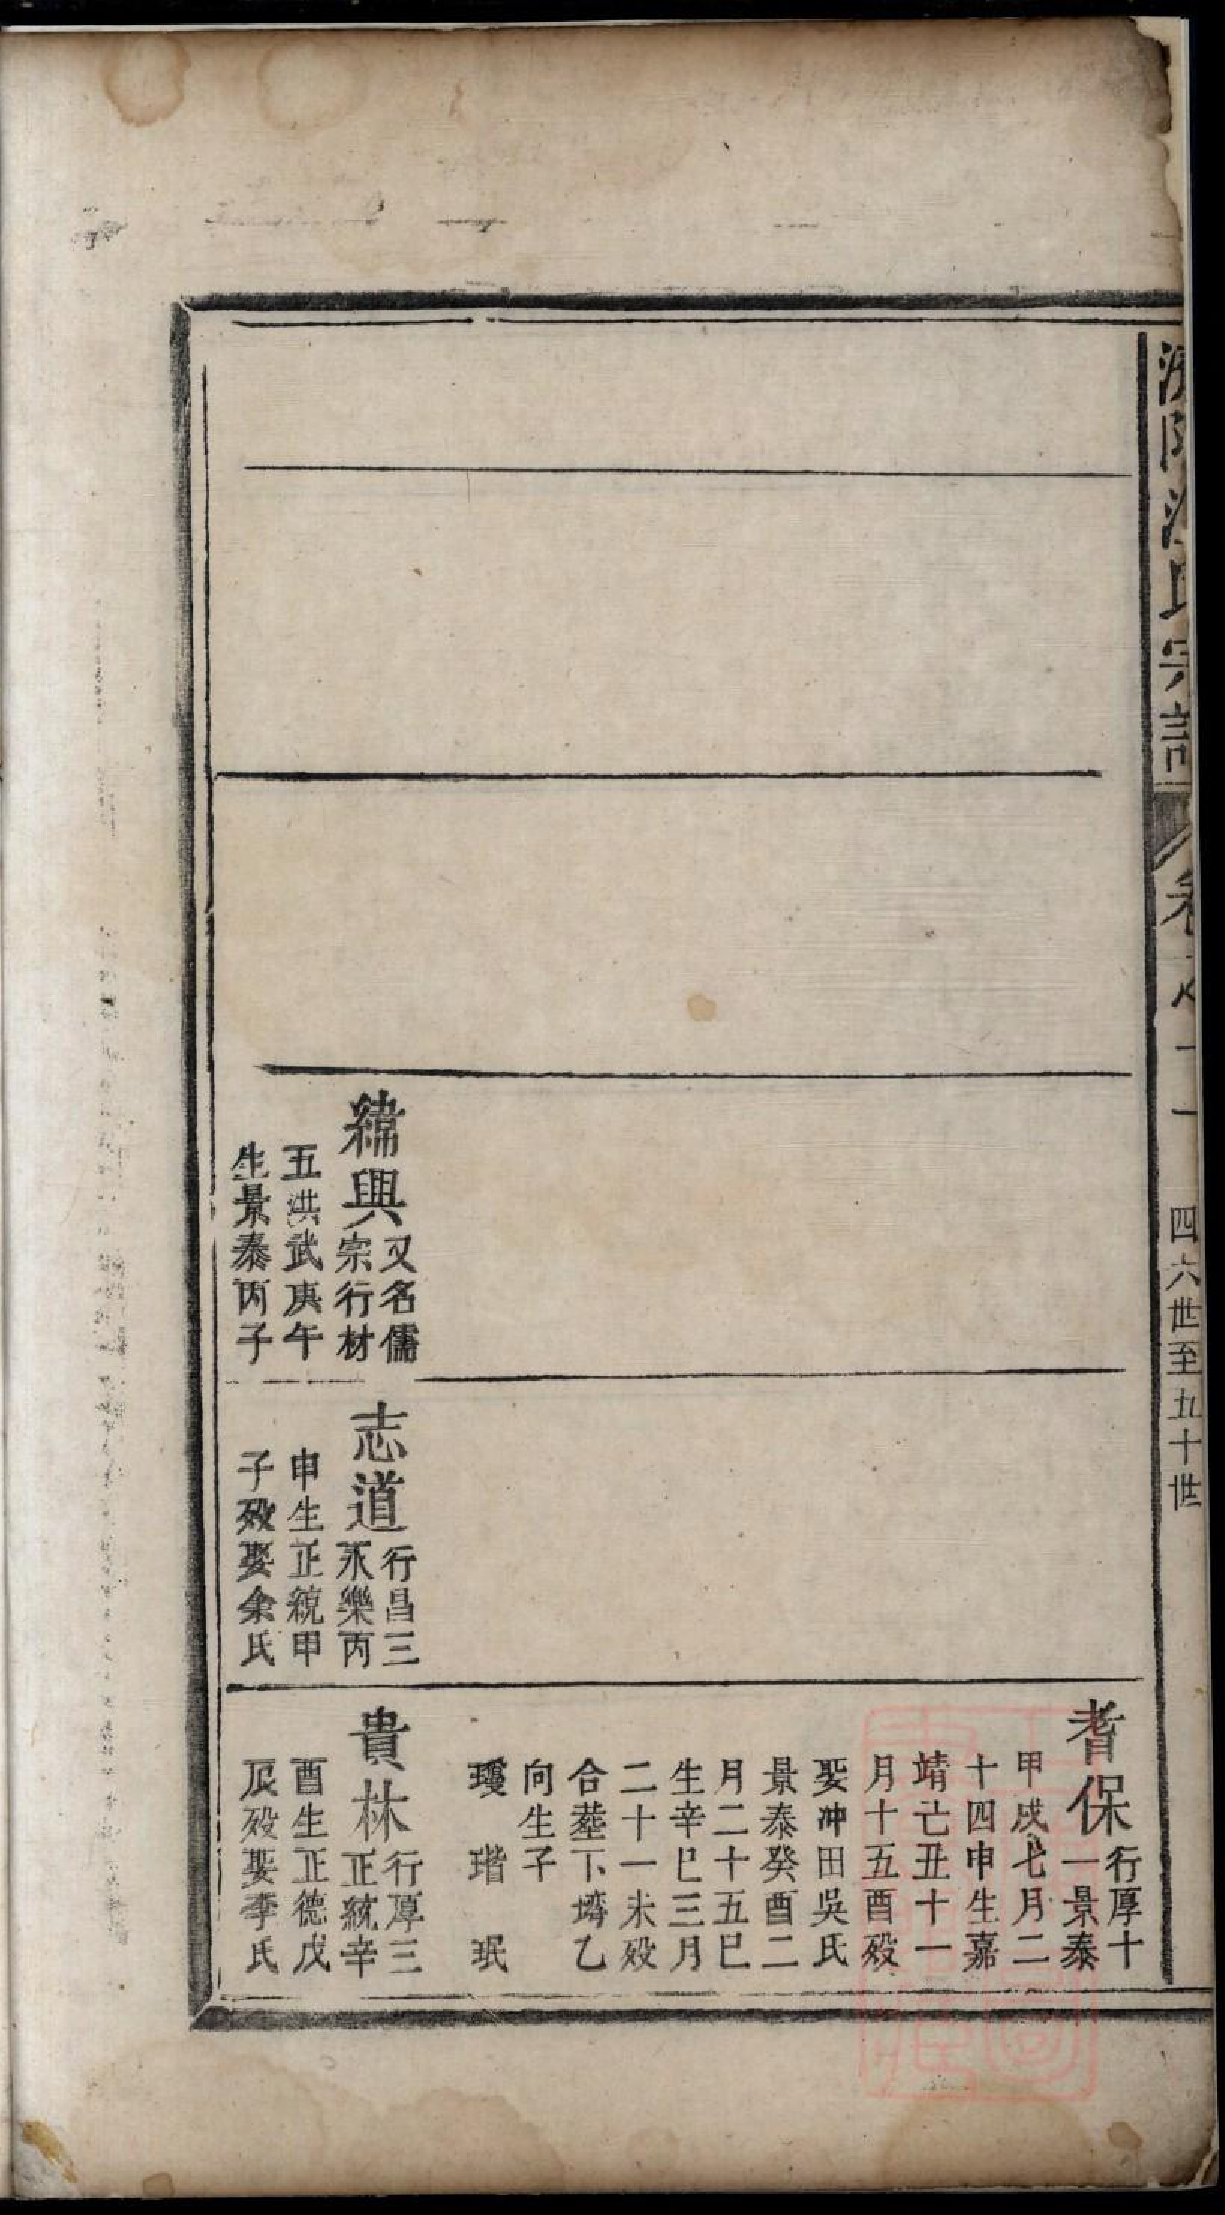 氏宗譜
卷之十一
四六世至五十世
緯興
又名儒
宗行材
五洪武庚午
生景泰丙子
志道
行昌三
永樂丙
申生正統甲
子歿娶余氏
耆保
行厚十
一景泰
甲戌七月二
十四申生嘉
靖己丑十一
月十五酉歿
娶冲田吳氏
景泰癸酉二
月二十五巳
生辛巳三月
二十一未歿
合塟下塝乙
向生子
瓊 瑎 珉
貴林
行厚三
正統辛
酉生正德戊
辰歿娶李氏